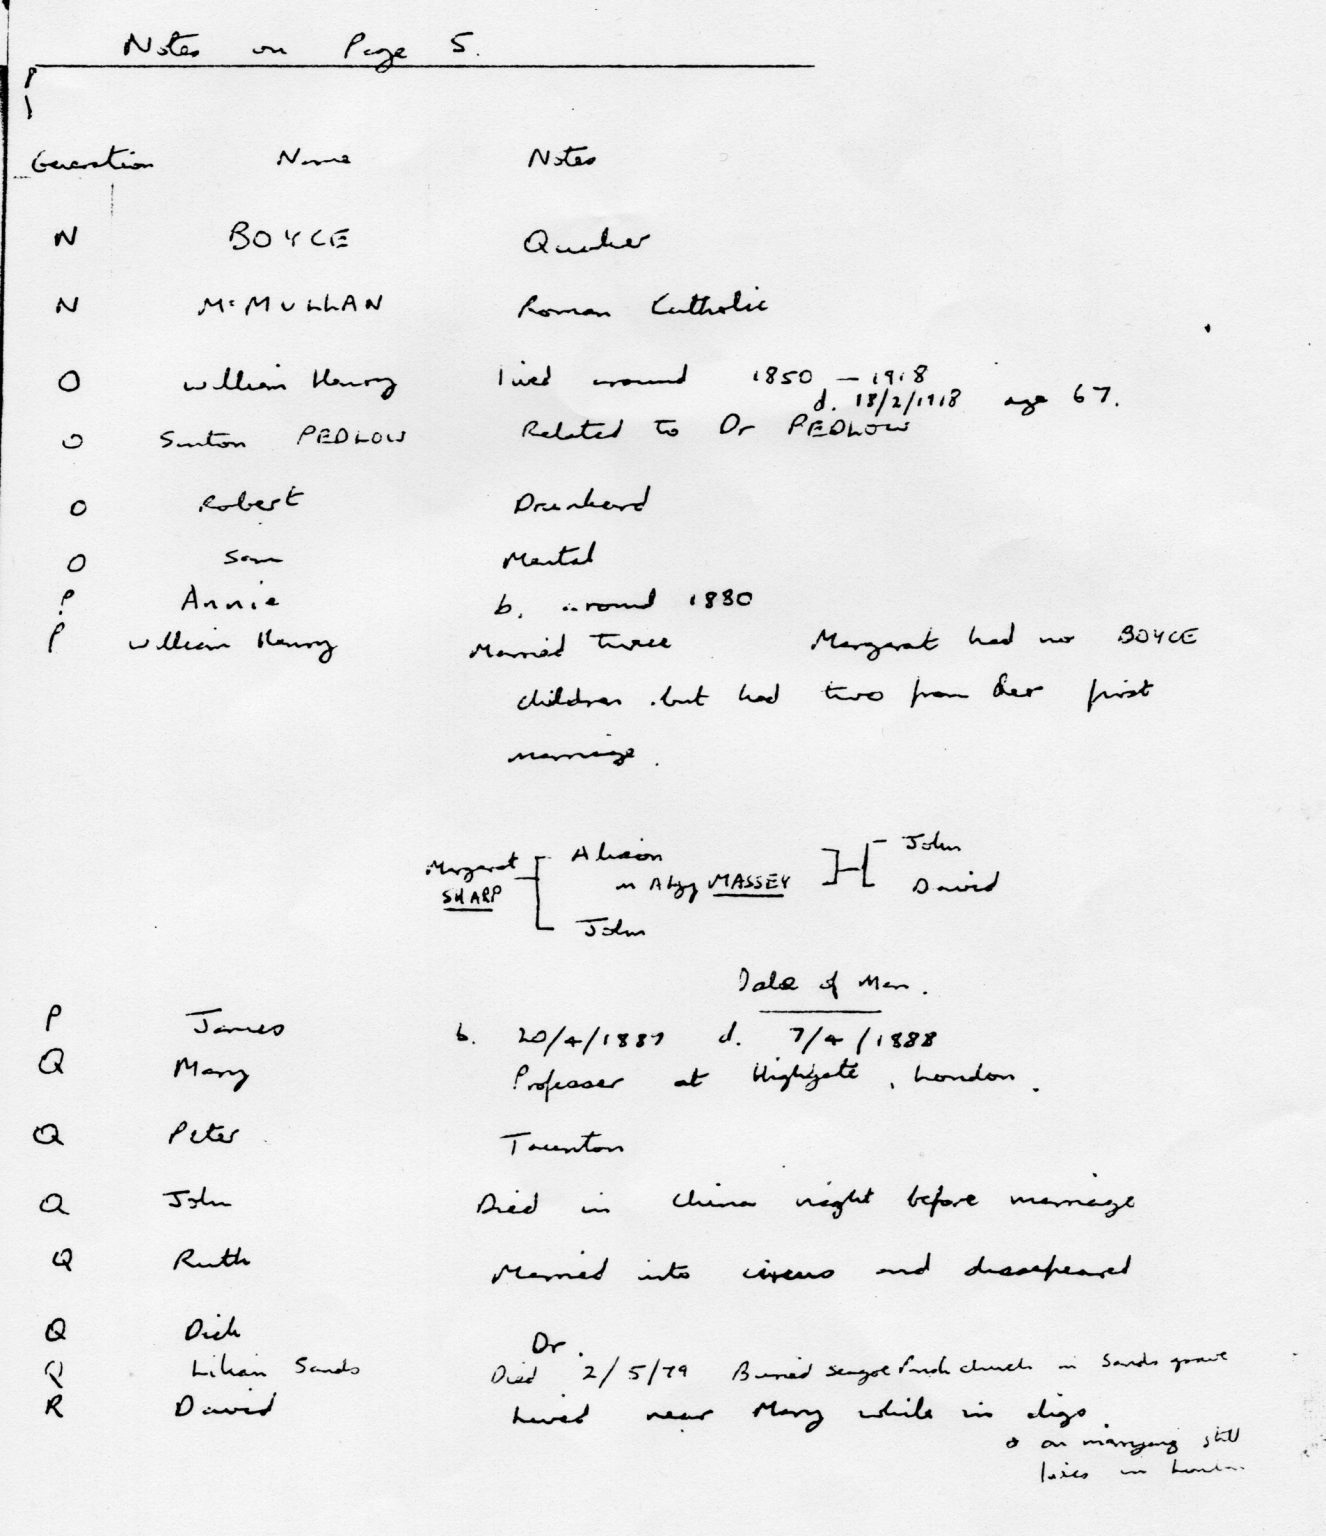 Notes on Page 5.
P
Generation Name Notes
N BOYCE Quaker
N McMULLAN Roman Catholic
O William Henry lived around 1850 - 1918
d. 18/2/1918 age 67.
O Sinton PEDLOW Related to Dr PEDLOW
O Robert Drunkard
O Sam Mental
P Annie b. around 1880
P William Henry Married twice Margaret had no BOYCE
children but had two from her first
marriage.
Margaret SHARP
Alison
m Algy MASSEY
John
John
David
Date of Mem.
P James b. 20/4/1887 d. 7/4/1888
Q Mary Professer at Highgate, London.
Q Peter Taunton
Q John Died in China night before marriage
Q Ruth Married into circus and dissapeared
Q Dick Dr.
Q Lilian Sands Died 2/5/79 Buried Seagoe Parish church in Sands grave
R David Lived near Mary while in digs
& on marrying still
lives in London